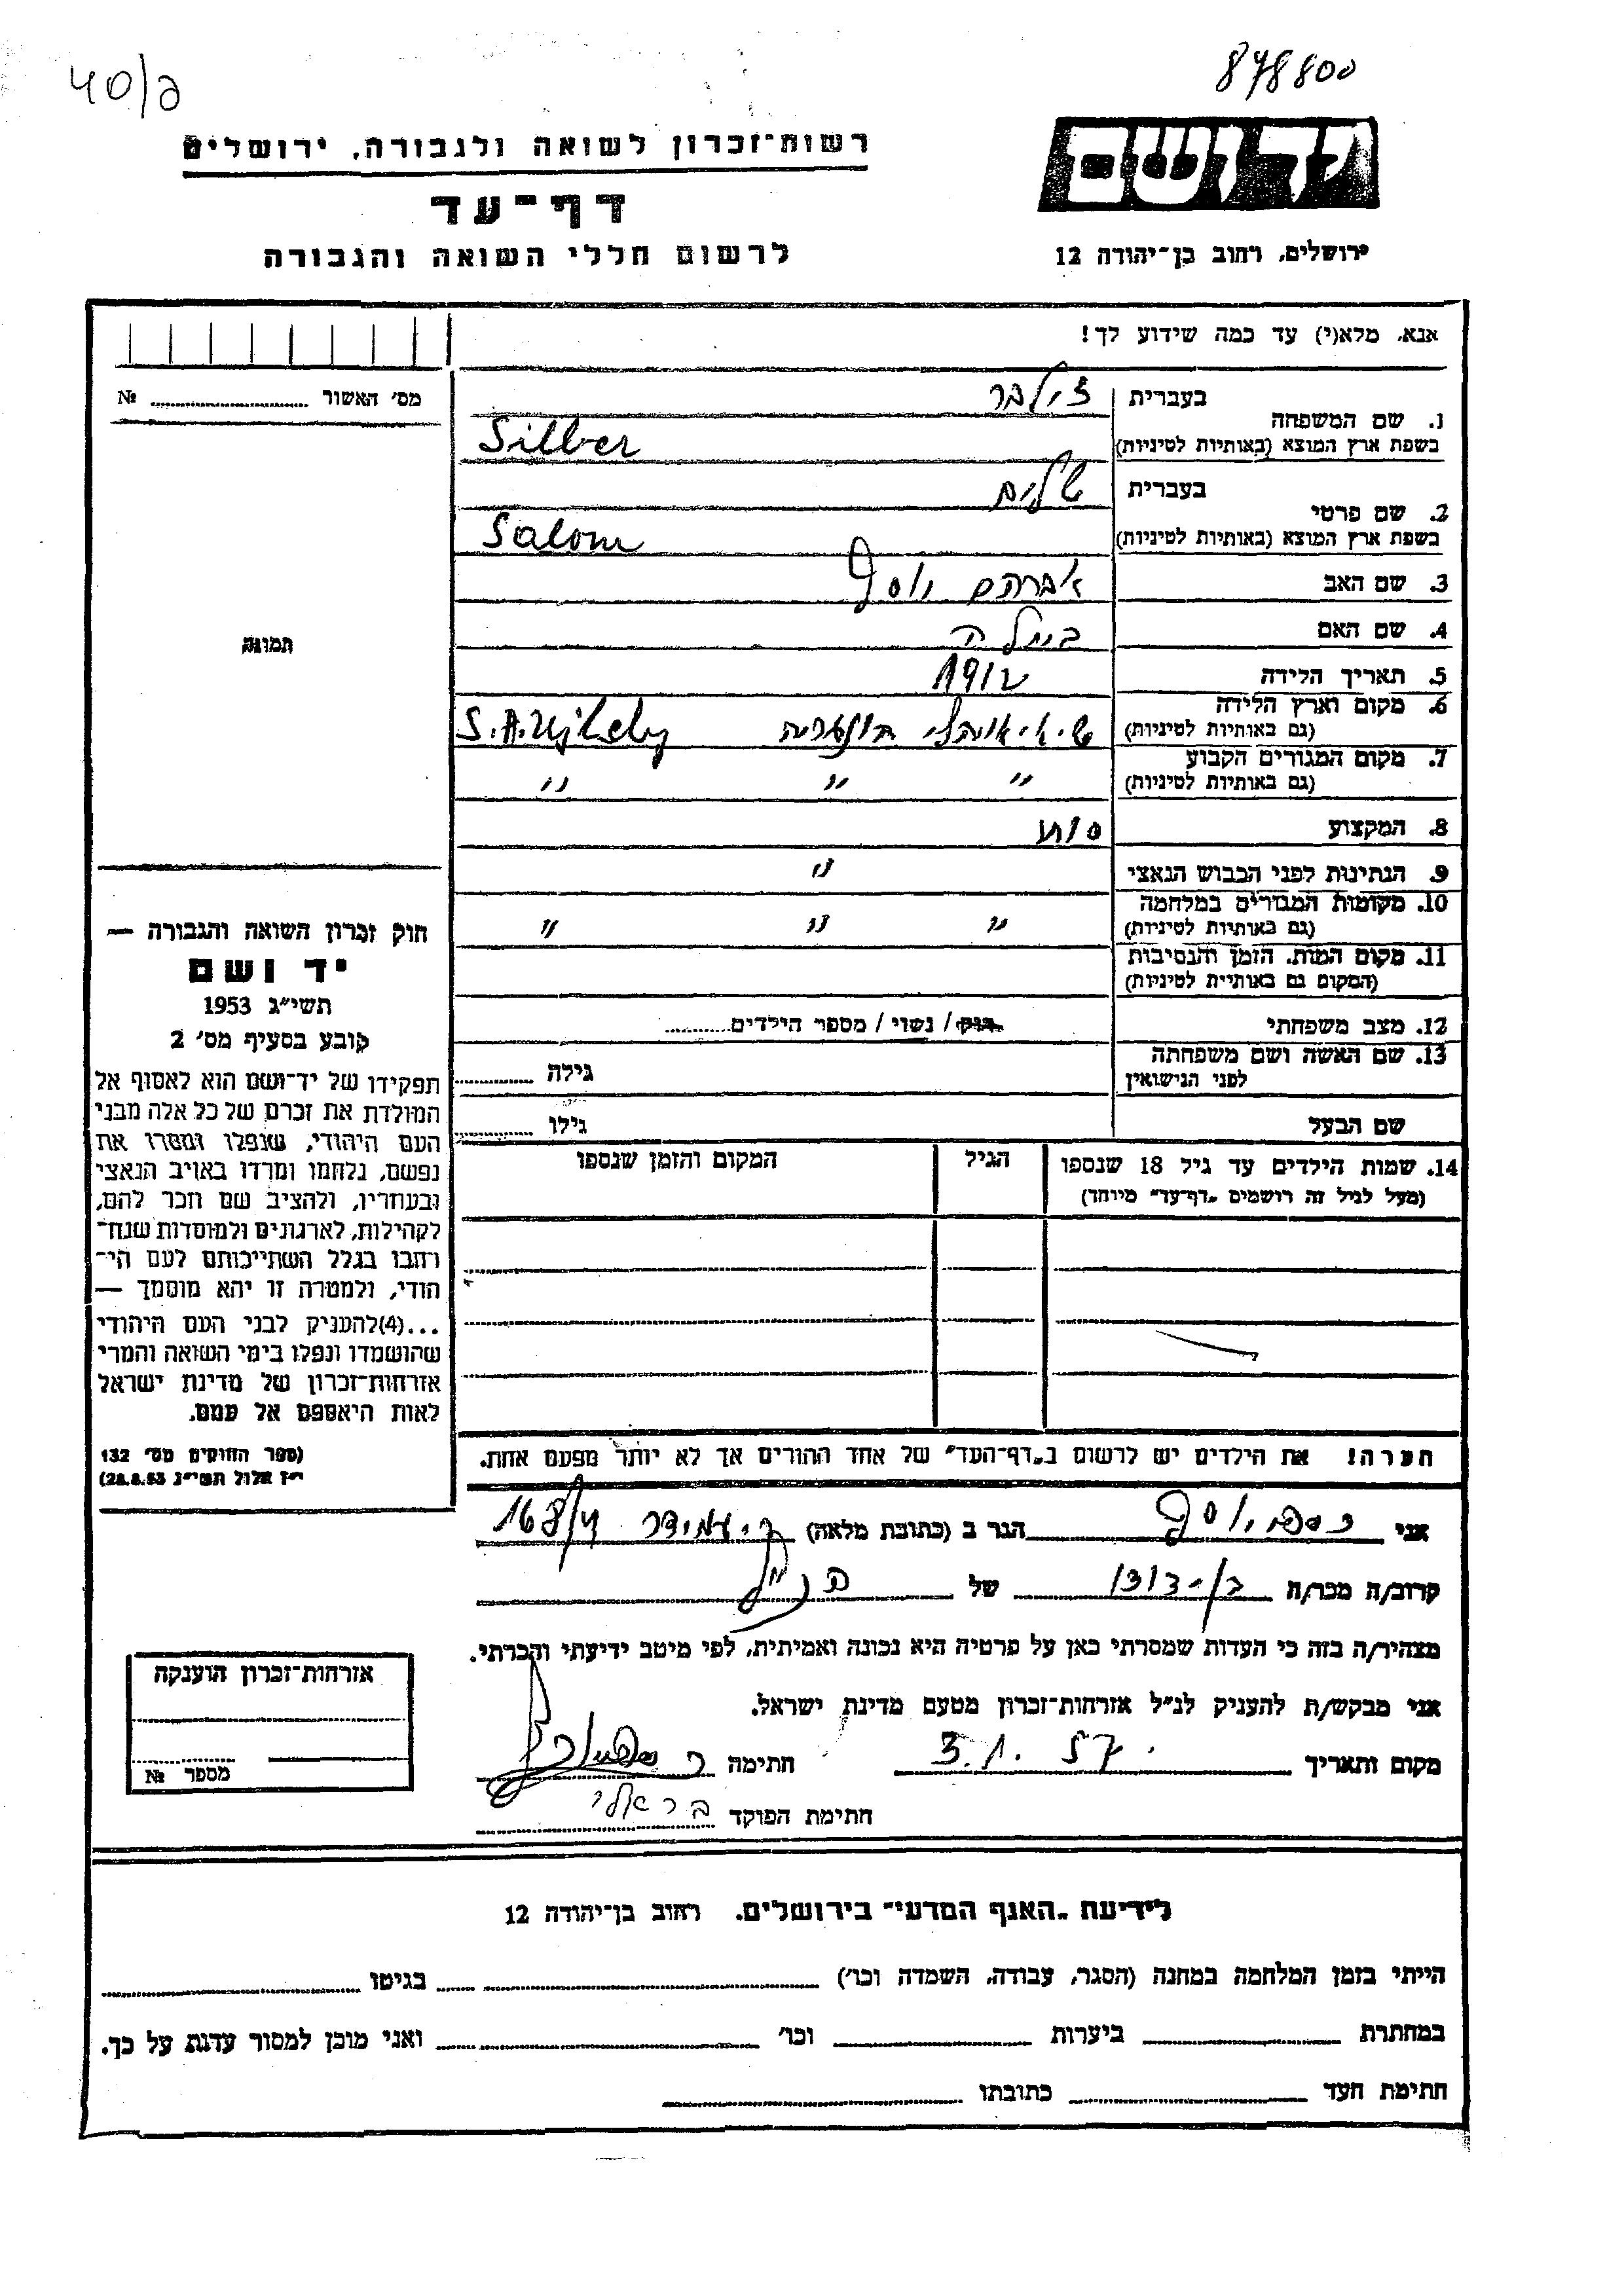 40/ם
878800
רשות־זכרון לשואה ולגבורה, ירושלים
יד ושם
דף־עד
לרשום חללי השואה והגבורה
ירושלים, רחוב בן־יהודה 12
אנא, מלא(י) עד כמה שידוע לך!
מס׳ האשור № 
1. שם המשפחה
בעברית זילבר
בשפת ארץ המוצא (באותיות לטיניות) Silber
2. שם פרטי
בעברית שלום
בשפת ארץ המוצא (באותיות לטיניות) Salom
3. שם האב אברהם יוסף
4. שם האם ביילה
5. תאריך הלידה 1912
6. מקום וארץ הלידה
(גם באותיות לטיניות) הונגריה S.A.Ujhely
7. מקום המגורים הקבוע
(גם באותיות לטיניות) " " "
8. המקצוע סוחר
9. הנתינות לפני הכבוש הנאצי "
10. מקומות המגורים במלחמה
(גם באותיות לטיניות) " " "
11. מקום המות, הזמן והנסיבות
(המקום גם באותיות לטיניות)
12. מצב משפחתי רוק / נשוי / מספר הילדים
13. שם האשה ושם משפחתה
לפני הנישואין גילה
שם הבעל גילו
14. שמות הילדים עד גיל 18 שנספו
(מעל לגיל זה רושמים „דף־עד״ מיוחד)
הגיל
המקום והזמן שנספו
הערה! את הילדים יש לרשום ב„דף־העד״ של אחד ההורים אך לא יותר מפעם אחת.
תמונה
חוק זכרון השואה והגבורה —
יד ושם
תשי״ג 1953
קובע בסעיף מס׳ 2
תפקידו של יד־ושם הוא לאסוף אל
המולדת את זכרם של כל אלה מבני
העם היהודי, שנפלו ומסרו את
נפשם, נלחמו ומרדו באויב הנאצי
ובעוזריו, ולהציב שם וזכר להם,
לקהילות, לארגונים ולמוסדות שנח־
רבו בגלל השתייכותם לעם הי־
הודי, ולמטרה זו יהא מוסמך —
...(4)להעניק לבני העם היהודי
שהושמדו ונפלו בימי השואה והמרי
אזרחות־זכרון של מדינת ישראל
לאות היאספם אל עמם.
(ספר החוקים מס׳ 132
י״ז אלול תשי״ג 28.8.53)
אני יוסף הגר ב (כתובת מלאה) עמידר 168/4
קרוב/ה מכר/ה בן-דודו של הנ״ל
מצהיר/ה בזה כי העדות שמסרתי כאן על פרטיה היא נכונה ואמיתית, לפי מיטב ידיעתי והכרתי.
אני מבקש/ת להעניק לנ״ל אזרחות־זכרון מטעם מדינת ישראל.
מקום ותאריך 3.1.57 חתימה
חתימת הפוקד
אזרחות־זכרון הוענקה
מספר №
לידיעת „האגף המדעי״ בירושלים, רחוב בן־יהודה 12
הייתי בזמן המלחמה במחנה (הסגר, עבודה, השמדה וכו׳) בגיטו
במחתרת ביערות וכו׳ ואני מוכן למסור עדות על כך.
חתימת העד כתובתו